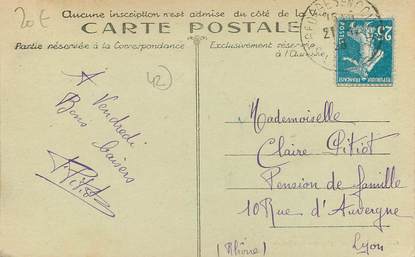 20€
Aucune inscription n'est admise du côté de la
CARTE POSTALE
Partie réservée à la Correspondance
Exclusivement réservée
à l'Adresse
25
42
A Vendredi
Bons baisers
Mademoiselle
Claire Pitiot
Pension de famille
10 Rue d'Auvergne
Lyon
(Rhône)